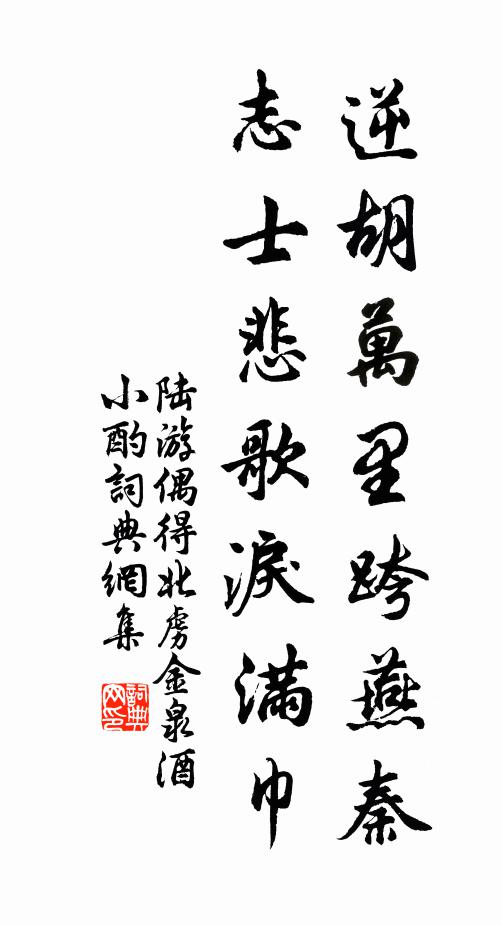 逆胡萬里跨燕秦
志士悲歌淚滿巾
陆游偶得北虏金泉酒
小酌詞典網集
詞典网印